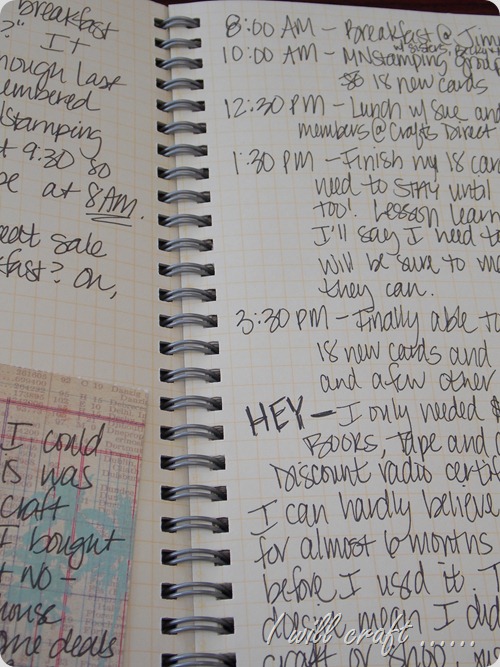 breakfast
?" It
hough last
embered
stamping
t 9:30 so
be at 8AM.
eat sale
fast? Oh,
I could
is was
craft
I bought
t no -
house
me deals
8:00 AM - Breakfast @ Jim
w/ sisters, Becky
10:00 AM - MNStamping group
18 new cards
12:30 PM - Lunch w/ Sue and
members @ Crafts Direct
1:30 PM - Finish my 18 car
need to STAY until
too! Lesson learn
I'll say I need to
will be sure to ma
they can.
3:30 PM - Finally able to
18 new cards and
and a few other
HEY - I only needed $
Books, Tape and
Discount radio certi
I can hardly believe
for almost 6 months
before I used it. I
doesn't mean I did
craft or shop
I will craft ......